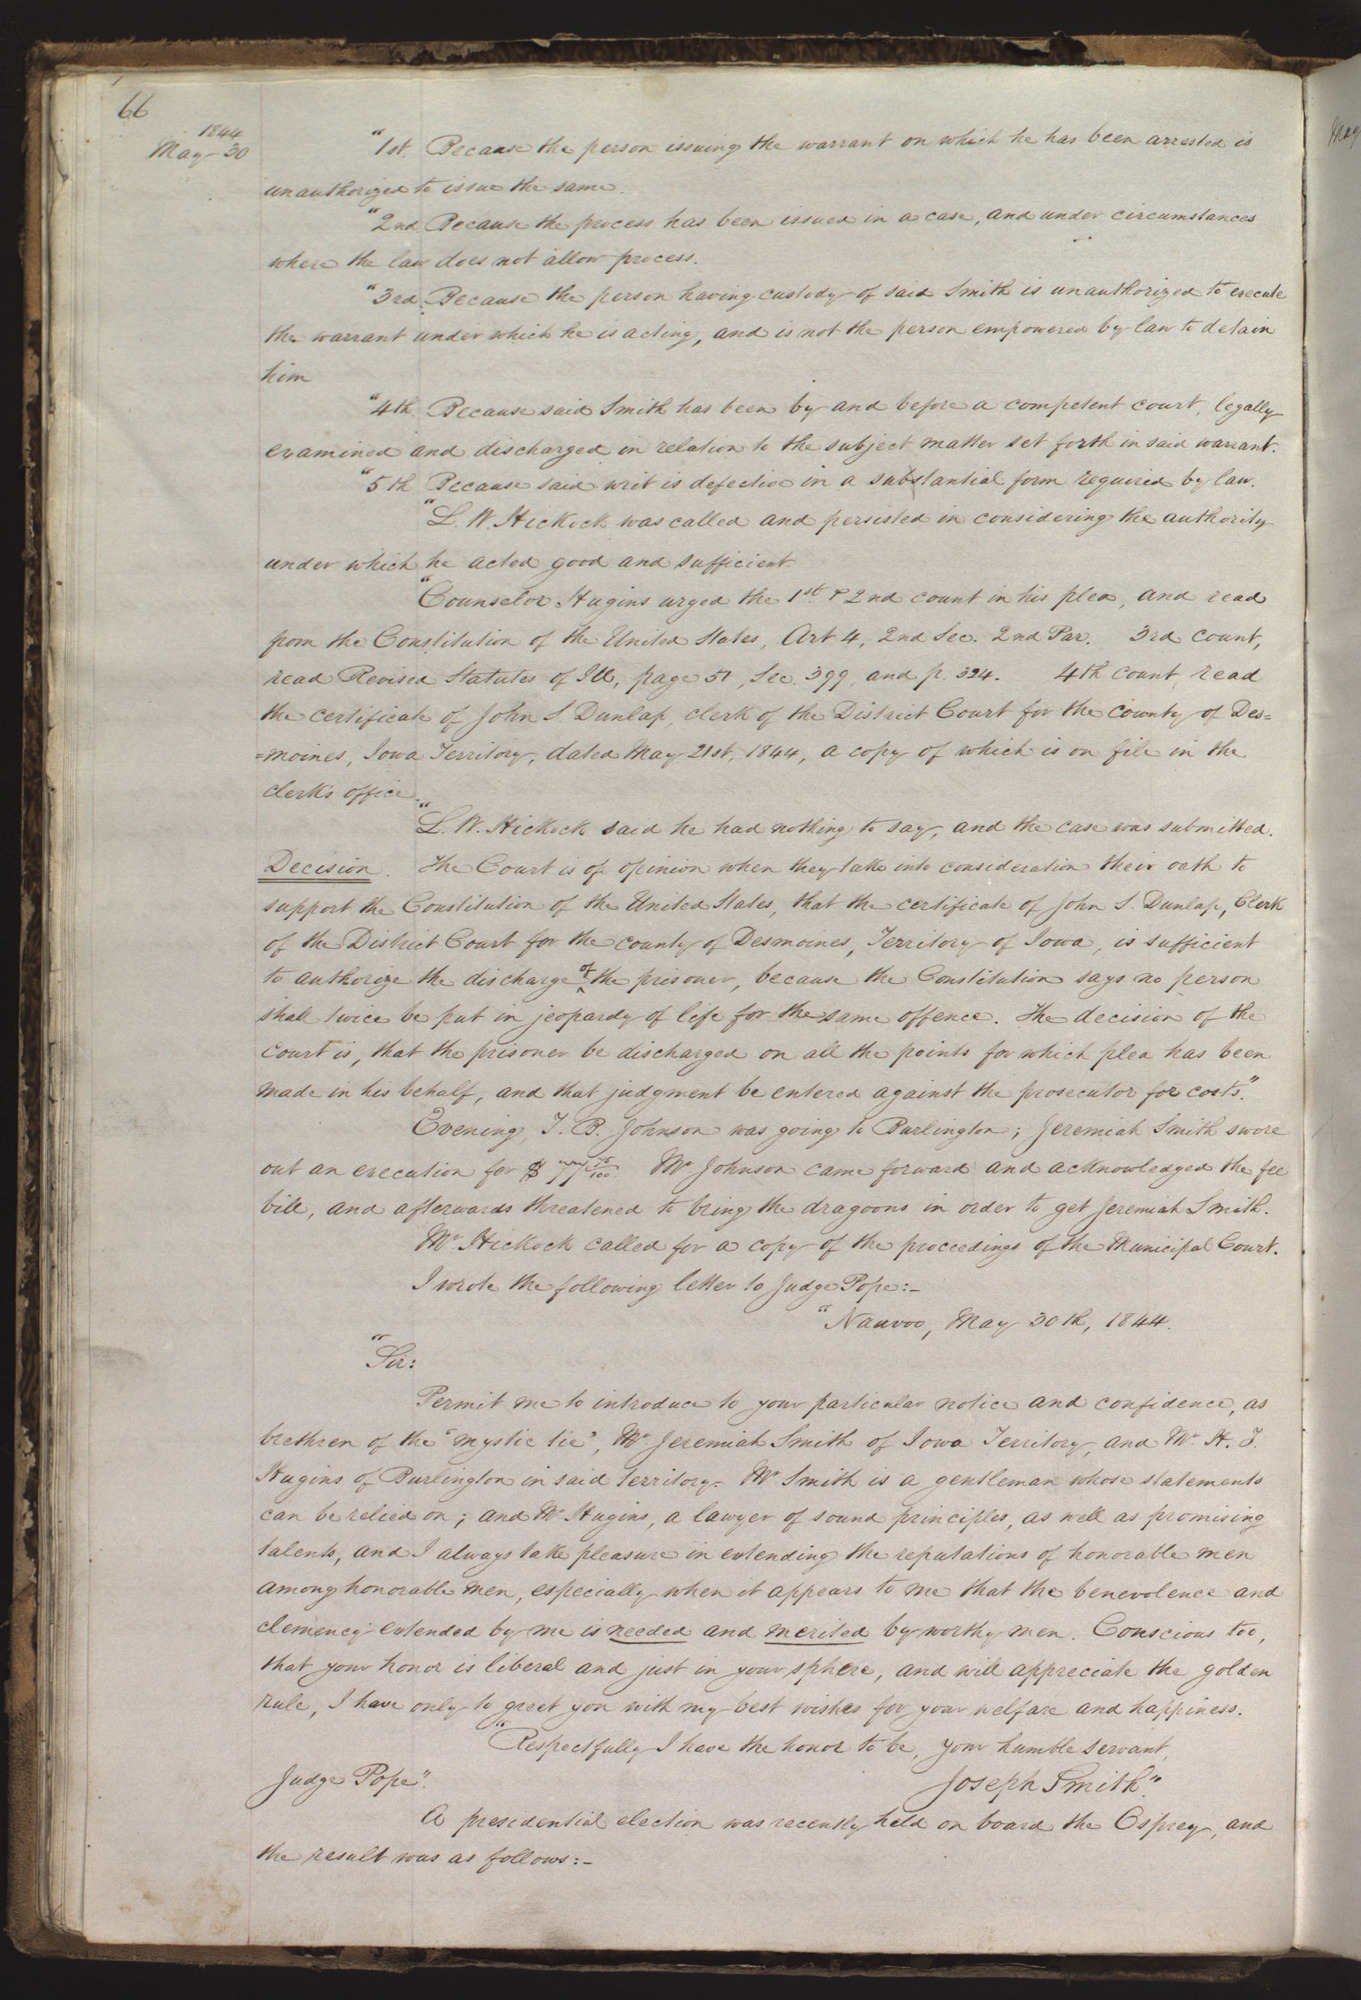 66
1844
May 30
"1st. Because the person issuing the warrant on which he has been arrested is
unauthorized to issue the same.
"2nd Because the process has been issued in a case, and under circumstances
where the law does not allow process.
"3rd. Because the person having custody of said Smith is unauthorized to execute
the warrant under which he is acting, and is not the person empowered by law to detain
him
"4th Because said Smith has been by and before a competent court, legally
examined and discharged in relation to the subject matter set forth in said warrant.
"5th Because said writ is defective in a substantial form required by law.
"L. W. Hickock was called and persisted in considering the authority
under which he acted good and sufficient.
"Counselor Hugins urged the 1st. & 2nd count in his plea, and read
from the Constitution of the United States, Art 4, 2nd Sec. 2nd Par. 3rd count,
read Revised Statutes of Ill, page 51, Sec. 399, and p. 324. 4th count, read
the certificate of John S. Dunlap, clerk of the District Court for the county of Des=
=moines, Iowa Territory, dated May 21st, 1844, a copy of which is on file in the
clerk's office.
"L. W. Hickock said he had nothing to say, and the case was submitted.
Decision. The Court is of opinion when they take into consideration their oath to
support the Constitution of the United States, that the certificate of John S. Dunlap, Clerk
of the District Court for the county of Desmoines, Territory of Iowa, is sufficient
to authorize the discharge of the prisoner, because the Constitution says no person
shall twice be put in jeopardy of life for the same offence. The decision of the
court is, that the prisoner be discharged on all the points for which plea has been
made in his behalf, and that judgment be entered against the prosecutor for costs."
Evening, T. B. Johnson was going to Burlington; Jeremiah Smith swore
out an execution for $ 77 75/100. Mr. Johnson came forward and acknowledged the fee
bill, and afterwards threatened to bring the dragoons in order to get Jeremiah Smith.
Mr. Hickock called for a copy of the proceedings of the Municipal Court.
I wrote the following letter to Judge Pope:—
"Nauvoo, May 30th, 1844.
"Sir:
Permit me to introduce to your particular notice and confidence, as
brethren of the "mystic tie", Mr. Jeremiah Smith of Iowa Territory, and Mr. H. T.
Hugins of Burlington in said territory. Mr. Smith is a gentleman whose statements
can be relied on; and Mr Hugins, a lawyer of sound principles, as well as promising
talents, and I always take pleasure in extending the reputations of honorable men
among honorable men, especially when it appears to me that the benevolence and
clemency extended by me is needed and merited by worthy men. Conscious too,
that your honor is liberal and just in your sphere, and will appreciate the golden
rule, I have only to greet you with my best wishes for your welfare and happiness.
"Respectfully I have the honor to be, your humble servant,
Judge Pope". Joseph Smith."
A presidential election was recently held on board the Osprey, and
the result was as follows:—
May